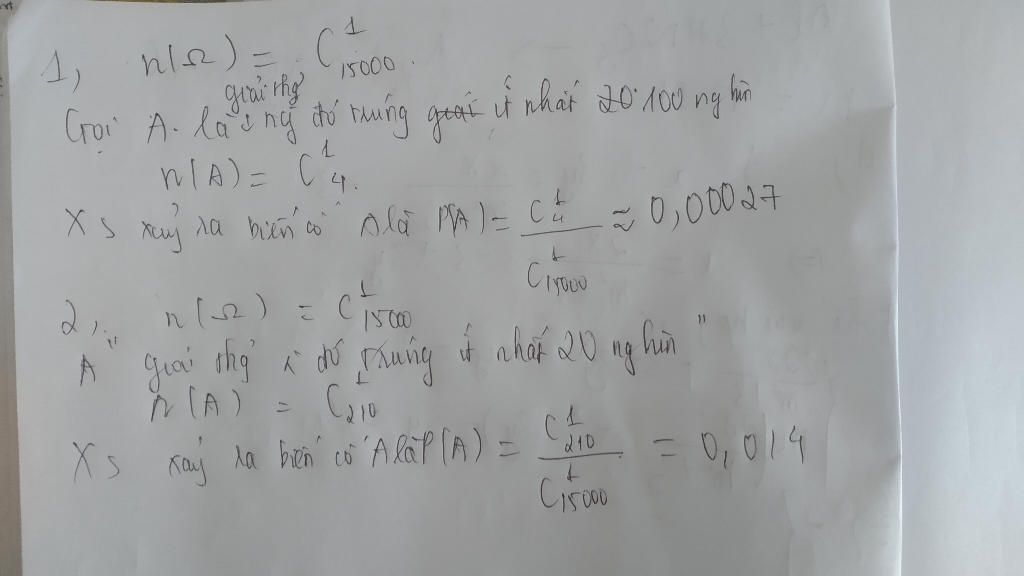 1, n(Ω) = C¹₁₅₀₀₀.
giải thg
Gọi A. là ng đó trúng giải ít nhất 20.100 nghìn
n(A) = C¹₄.
Xs xảy ra biến cố A là P(A) = C¹₄ / C¹₁₅₀₀₀ ≈ 0,00027
2, n(Ω) = C¹₁₅₀₀₀
A " giải thg đó trúng ít nhất 20 nghìn "
n(A) = C¹₂₁₀
Xs xảy ra biến cố A là P(A) = C¹₂₁₀ / C¹₁₅₀₀₀ = 0,014